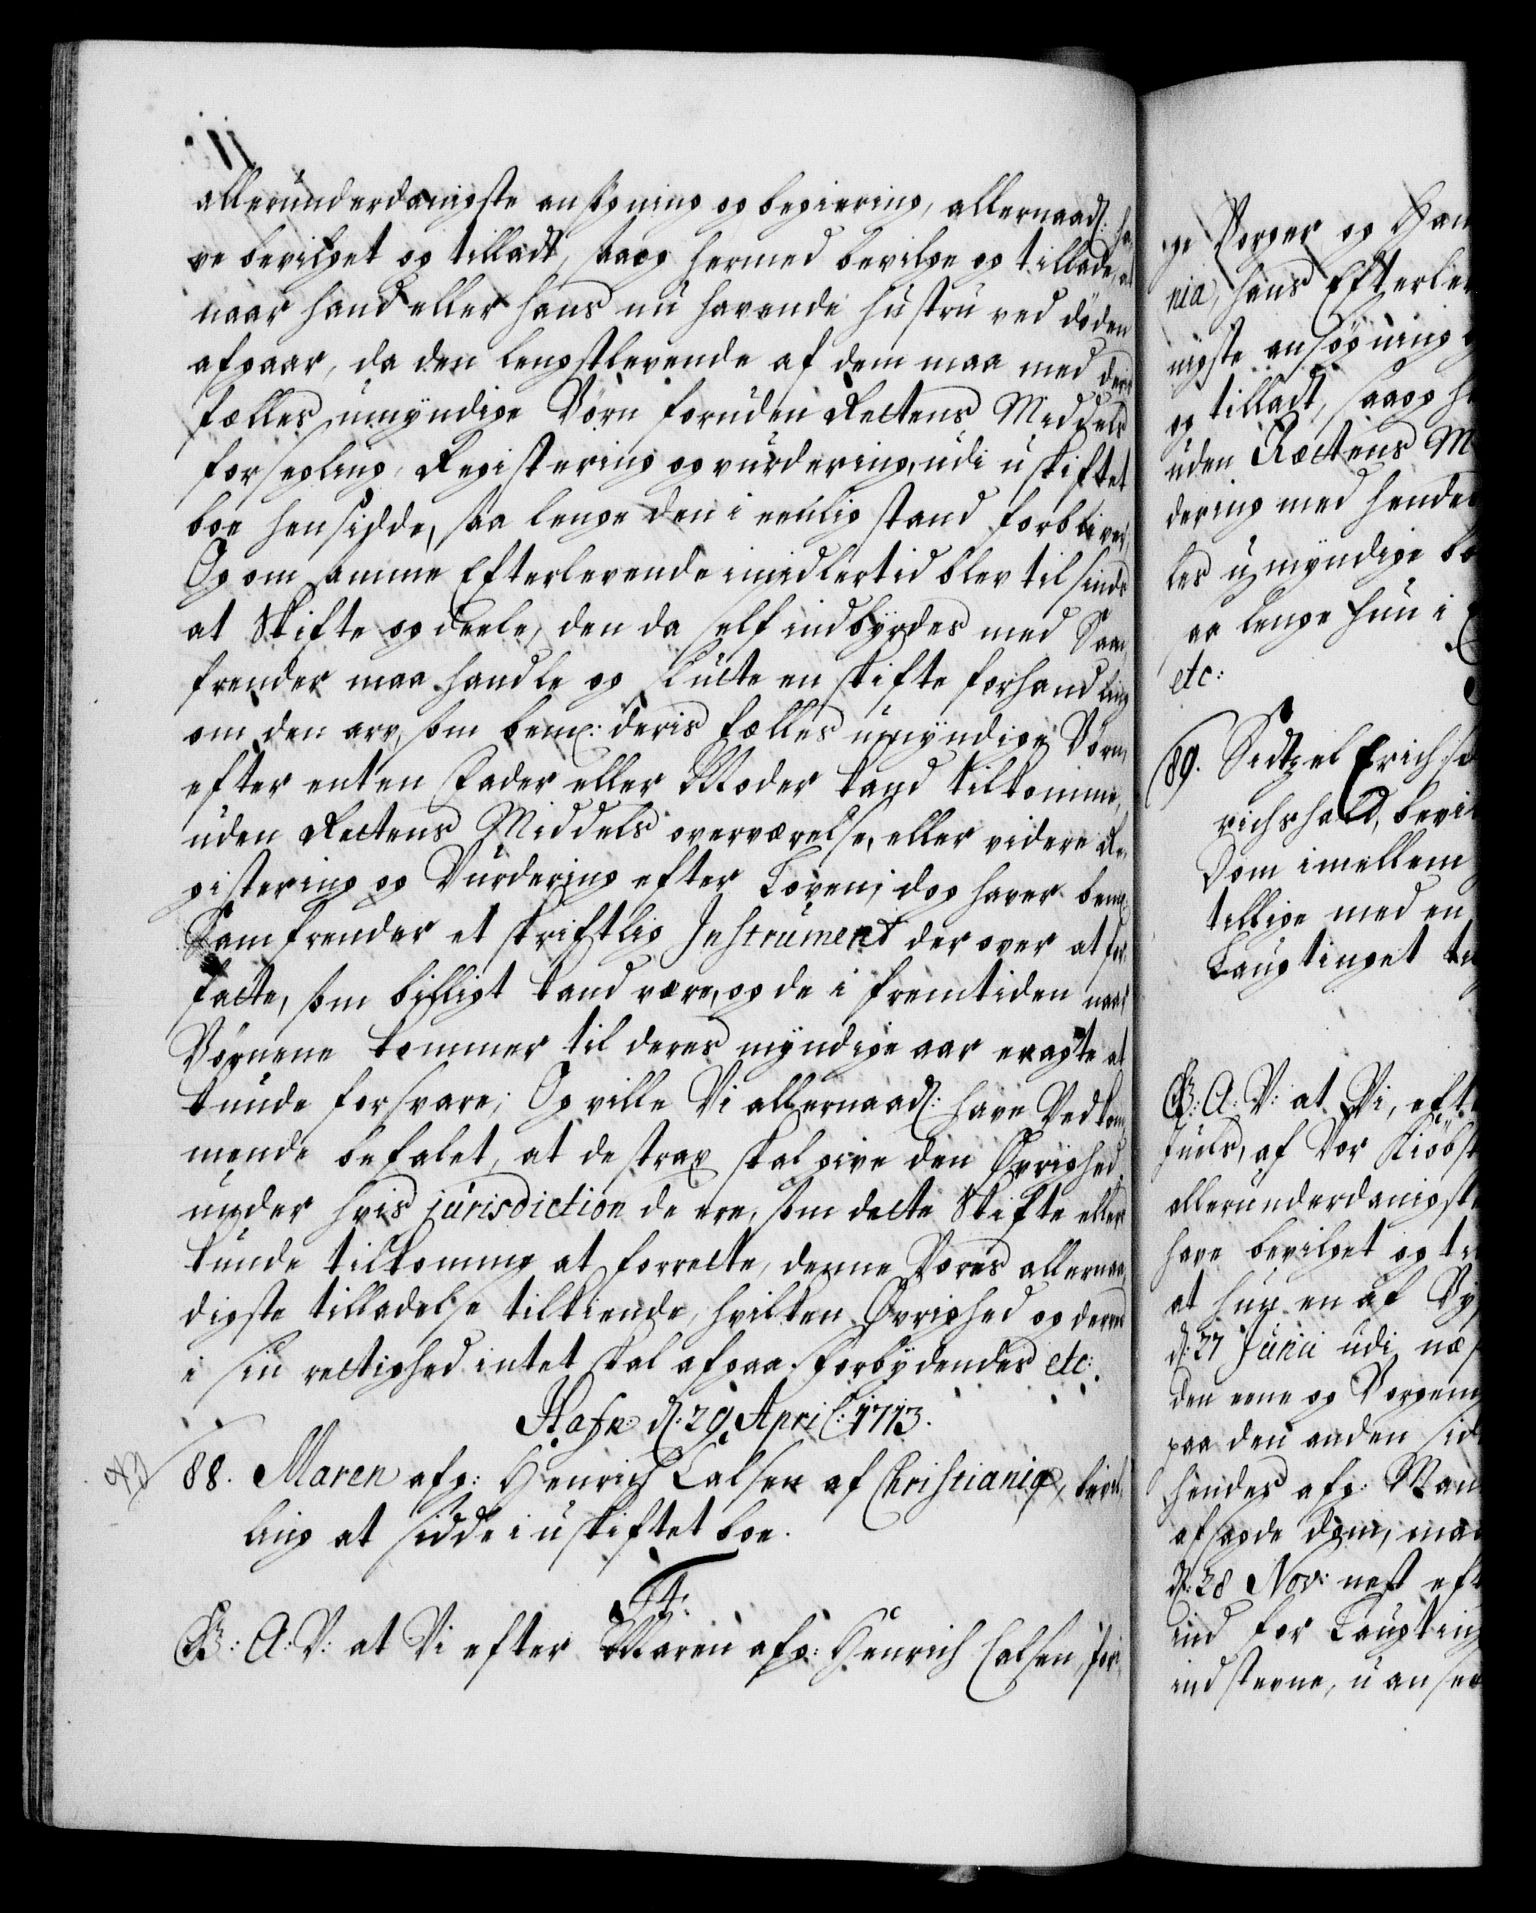 allerunderdanigste ansøgning og begiering, allernaad: ha,
ve bevilget og tilladt, saa og hermed bevilge og tillade, at
naar hand eller hans nu havende hustru ved döden
afgaar, da den lengstlevende af dem maa med deris
fælles umyndige Börn foruden Rettens Middels
forsegling, Registering og vurdering, udi uskiftet
boe hensidde, saa lenge den i eenlig stand forbliver,
Og om samme Efterlevende imidlertid blev til sinds
at Skifte og deele, den da self indbyrdes med Sam,
frender maa handle og slutte en skifte forhandling
om den arv, som bem: deris fælles umyndige Börn,
efter enten Fader eller Moder kand tilkomme,
uden Rettens Middels overværelse, eller videre Re,
gistering og Vurdering efter Loven, dog haver bem:
Samfrender et skriftlig Instrument derover at for,
fatte, som billigt kand være, og de i fremtiden naar
Börnene kommer til deres myndige aar eragte at
kunde forsvare; Og ville Vi allernaad: have Vedkom,
mende befalet, at de strax skal give den Øvrighed,
under hvis jurisdiction de ere, som dette Skifte eller
kunde tilkomme at forrette, denne Vores allernaa,
digste tilladelse tilkiende, hvilken Øvrighed og derved
i sin rettighed intet skal afgaa. Forbydendes etc:
Hafn: d: 29 April: 1713.
88. Maren afg: Henrich Calsen af Christiania, bevil,
ling at sidde i uskiftet boe.
F4:
G: A: V: at Vi efter Maren afg: Henrich Calsen, for,
ge Borger og Han
nia, hans Efterlev
nigste ansøgning og
og tilladt, saa og h
uden Rettens M
dering med hendes
les umyndige bö
aa lenge hun i
etc:
89. Sidtzel Erichs
richshald, bevil
Dom imellem
tillige med en
Laugtinget
G: A: V: at Vi, eft
Juels, af Vor Kiöbst
allerunderdanigst
have bevilget og til
at hun en af By
d: 27 Junii udi næ
den eene og Borgem
paa den anden sid
hendes afg: Man
afsagde dom, maa
d: 28 Nov: nest eft
ind for Laugting
indstevne, uansee